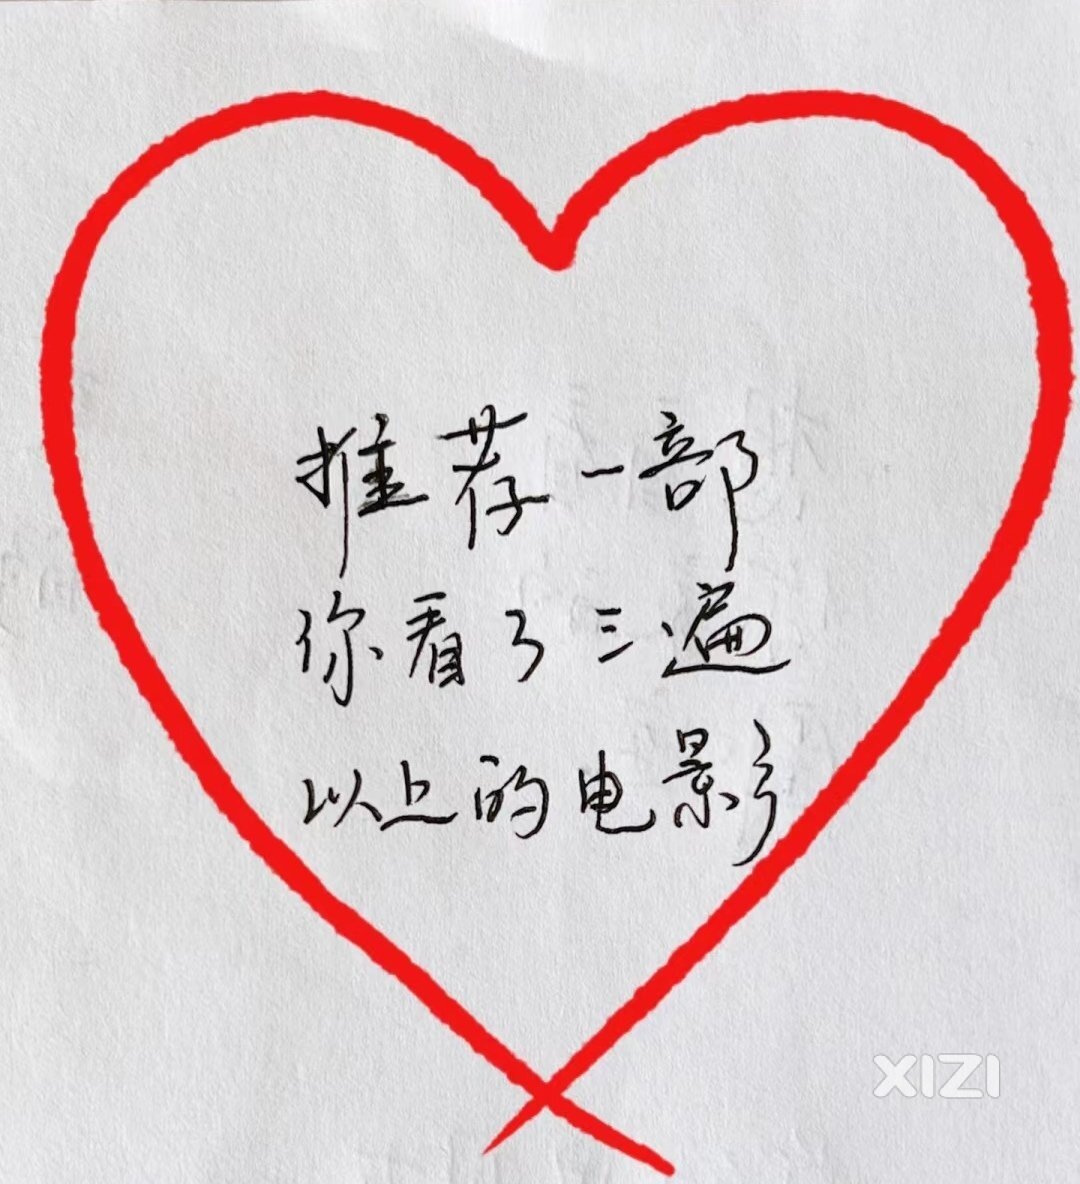 推荐一部
你看了三遍
以上的电影
XIZI